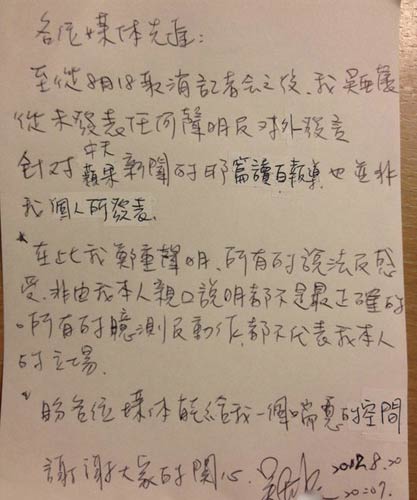 各位媒體先進:
至從8月18取消記者會之後、我吳亞馨
從未發表任何聲明及對外發言
中天
針對蘋果新聞的那篇讀白報導,也並非
我個人所發表.
*在此我鄭重聲明、所有的說法及感
受、非由我本人親口說明都不是最正確的
。所有的臆測及動作,都不代表我本人
的立場.
*盼各位媒体能給我一個喘息的空間
謝謝大家的關心. 2012.8.20
20:07.